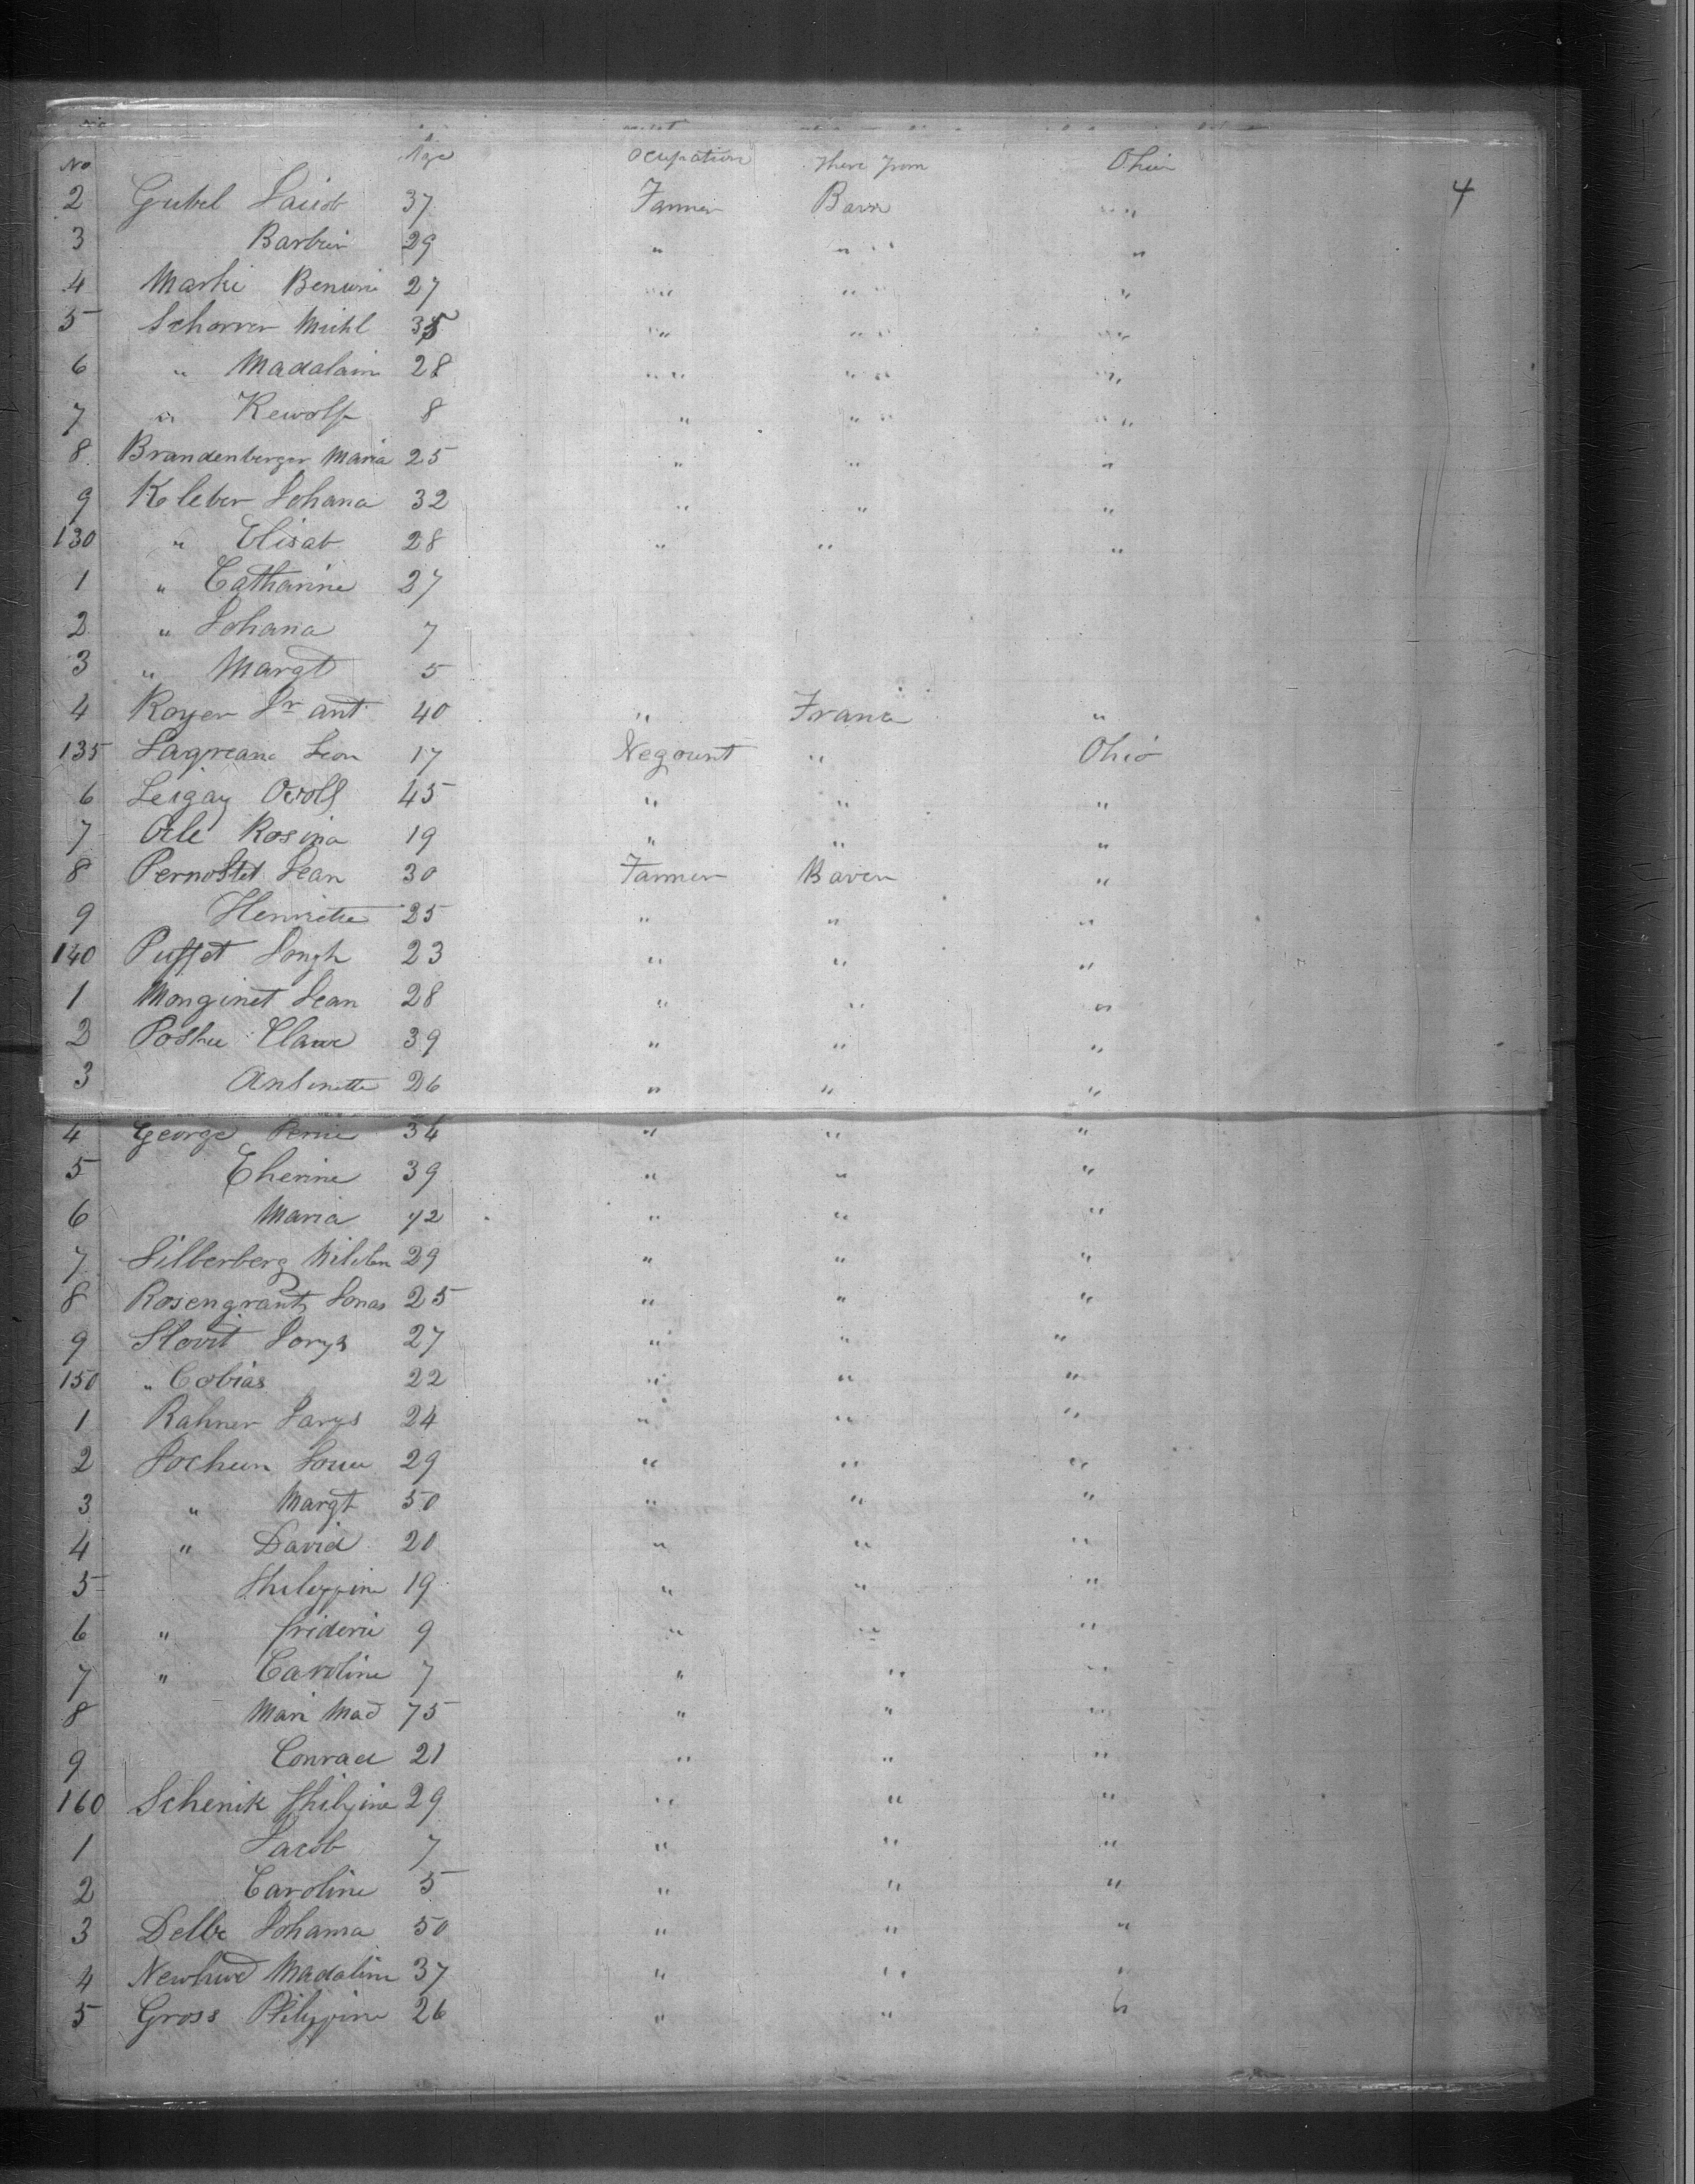 No Age Ocupation Where from Ohio
4
2 Gubel Jacob 37 Farmer Bavr " "
3 Barbri 29 " " " "
4 Marki 27 " " " "
5 Schorrer Michl 35 " " " "
6 " Madalain 28 " " " "
7 " Rewolf 8 " " " "
8 Brandenberger Maria 25 " " "
9 Kleber Johana 32 " " "
130 " Elisab 28 " " "
1 " Catharine 27
2 " Johana 7
3 " Margt 5
4 Royer Jr ant 40 " Franc "
135 Lagreana Leon 17 Negount " Ohio
6 Leigay 45 " " "
7 Ocle Rosina 19 " " "
8 Pernostet Jean 30 Farmer Baver "
9 Henriette 25 " " "
140 Puffet Josph 23 " " "
1 Monginet Jean 28 " " "
2 Poshee Clawe 39 " " "
3 Antinette 26 " " "
4 George Perrie 34 " " "
5 Eherine 39 " " "
6 Maria 72 " " "
7 Silberberg 29 " " "
8 Rosengrants Jonas 25 " " "
9 Slovit Jorys 27 " " "
150 " Cobias 22 " " "
1 Rahner Jarys 24 " " "
2 Jocheim 29 " " "
3 " Margt 50 " " "
4 " David 20 " " "
5 Philippine 19 " " "
6 " frideric 9 " " "
7 " Caroline 7 " " "
8 Mari Mad 75 " " "
9 Conrad 21 " " "
160 Schenik Philipine 29 " " "
1 Jacob 7 " " "
2 Caroline 5 " " "
3 Delbe Johanna 50 " " "
4 Madaline 37 " " "
5 Gross Philippine 26 " " "